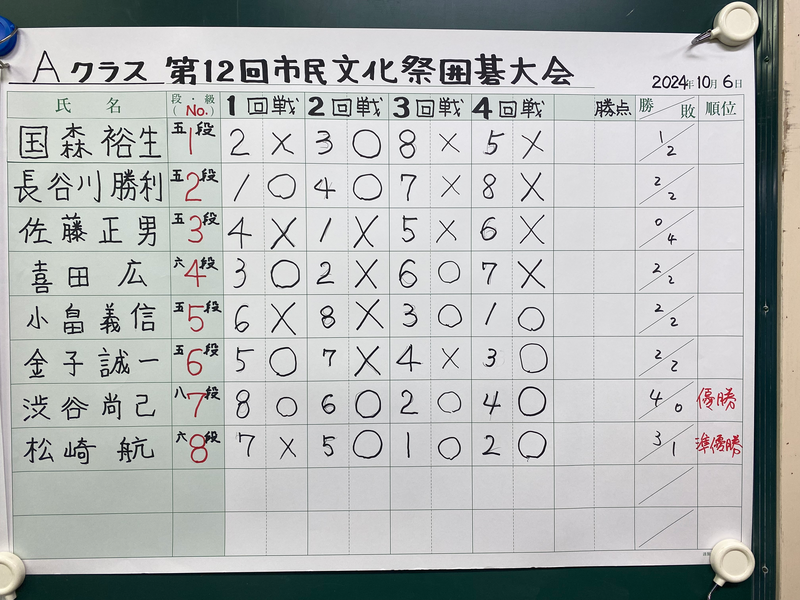 Aクラス 第12回市民文化祭囲碁大会
2024年10月6日
氏 名 段・級 (No.) 1回戦 2回戦 3回戦 4回戦 勝点 勝/敗 順位
国森裕生 五段 1 2 × 3 ○ 8 × 5 × 1/2
長谷川勝利 五段 2 1 ○ 4 ○ 7 × 8 × 2/2
佐藤正男 五段 3 4 × 1 × 5 × 6 × 0/4
喜田 広 六段 4 3 ○ 2 × 6 ○ 7 × 2/2
小畠義信 五段 5 6 × 8 × 3 ○ 1 ○ 2/2
金子誠一 五段 6 5 ○ 7 × 4 × 3 ○ 2/2
渋谷尚己 八段 7 8 ○ 6 ○ 2 ○ 4 ○ 4/0 優勝
松崎 航 六段 8 7 × 5 ○ 1 ○ 2 ○ 3/1 準優勝